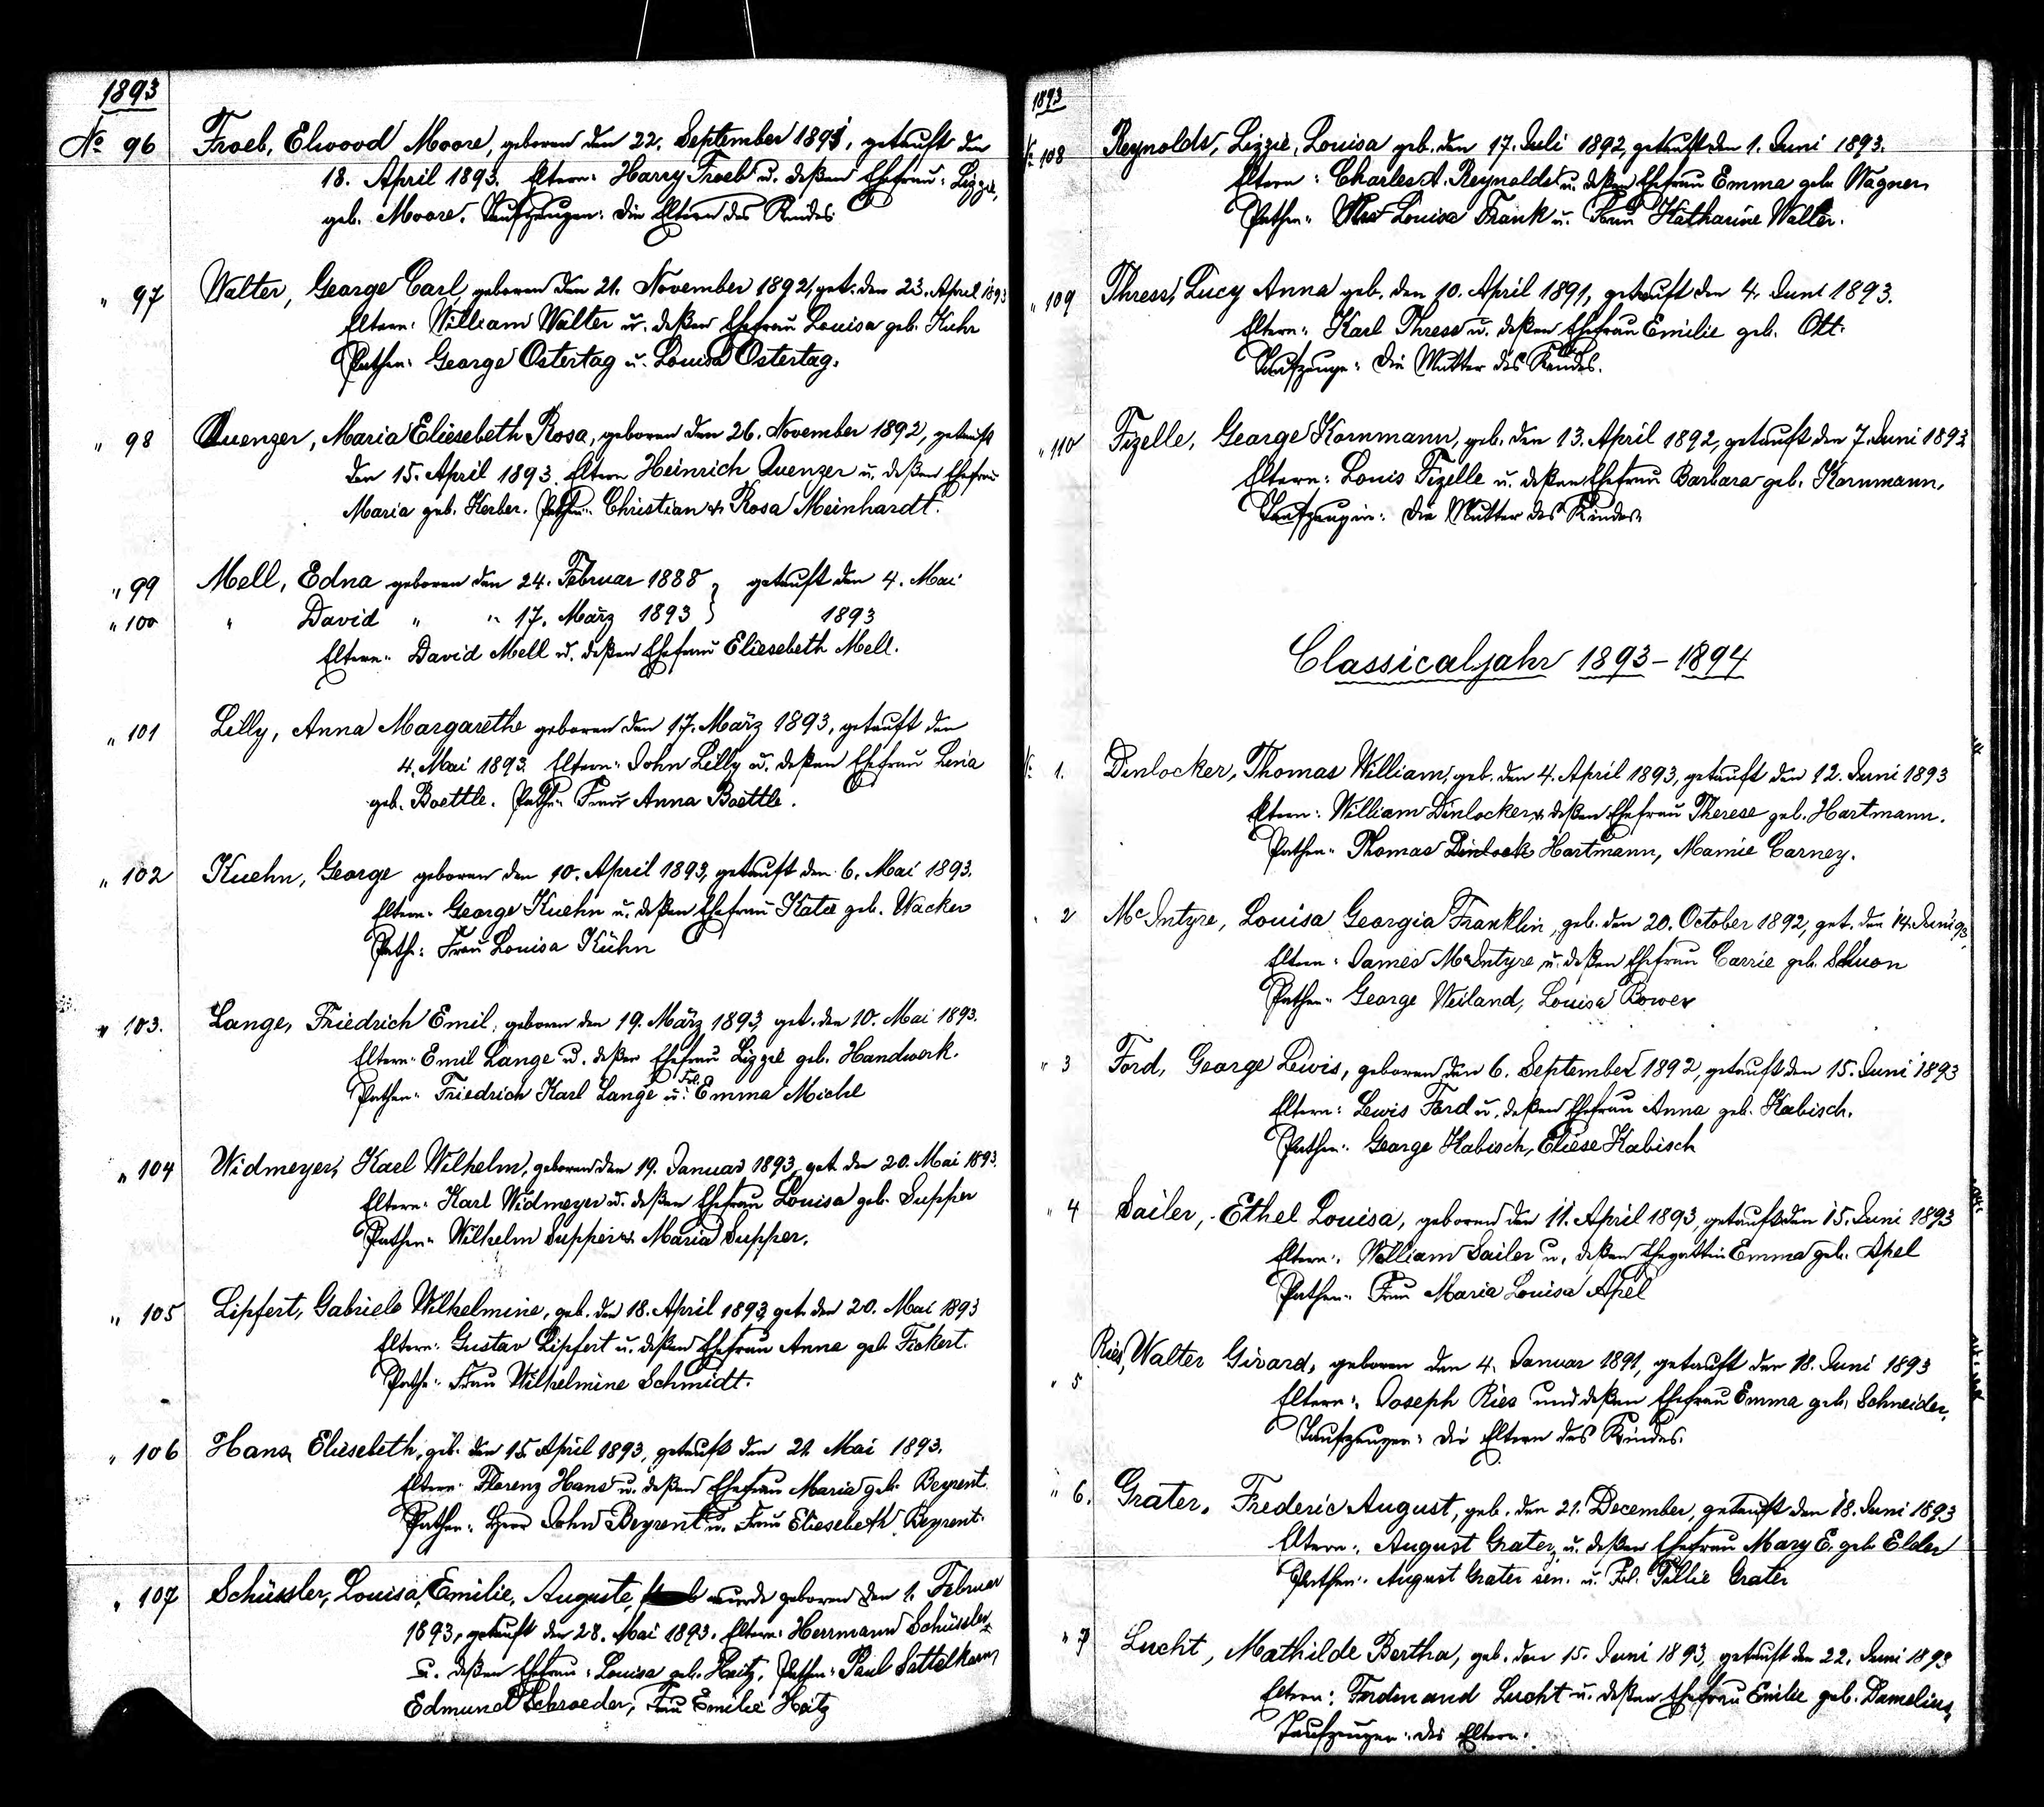 1893
No 96 Froeb, Elwood Moore, geboren den 22. September 1891, getauft den
18. April 1893. Eltern: Harry Froeb u. deßen Ehefrau: Lizzie,
geb. Moore. Taufzeugen: die Eltern des Kindes.
" 97 Walter, George Carl, geboren den 21. November 1892, get. den 23. April 1893
Eltern: William Walter u. deßen Ehefrau Louisa geb. Kuhr
Pathen: George Ostertag u. Louisa Ostertag.
" 98 Quenzer, Maria Eliesebeth Rosa, geboren den 26. November 1892, getauft
den 15. April 1893. Eltern Heinrich Quenzer u. deßen Ehefrau
Maria geb. Kerber. Pathen: Christian u. Rosa Meinhardt.
" 99 Mell, Edna geboren den 24. Februar 1888 } getauft den 4. Mai
" 100 " David " " 17. März 1893 } 1893
Eltern: David Mell u. deßen Ehefrau Eliesebeth Mell.
" 101 Lilly, Anna Margarethe geboren den 17. März 1893, getauft den
4. Mai 1893. Eltern: John Lilly u. deßen Ehefrau Lena
geb. Boettle. Pathe: Frau Anna Boettle.
" 102 Kuehn, George geboren den 10. April 1893, getauft den 6. Mai 1893.
Eltern: George Kuehn u. deßen Ehefrau Katie geb. Wacker
Pathe: Frau Louisa Kühn
" 103. Lange, Friedrich Emil, geboren den 19. März 1893, get. den 10. Mai 1893.
Eltern: Emil Lange u. deßen Ehefrau Lizzie geb. Handwerk.
Pathen: Friedrich Karl Lange u. Frl. Emma Michl
" 104 Widmeyer, Karl Wilhelm, geboren den 19. Januar 1893, get. den 20. Mai 1893.
Eltern: Karl Widmeyer u. deßen Ehefrau Louisa geb. Supper
Pathen: Wilhelm Supper u. Maria Supper.
" 105 Lipfert, Gabriele Wilhelmine, geb. den 18. April 1893, get. den 20. Mai 1893
Eltern: Gustav Lipfert u. deßen Ehefrau Anna geb. Fickert.
Pathe: Frau Wilhelmine Schmidt.
" 106 Hans, Eliesebeth, geb. den 15. April 1893, getauft den 21. Mai 1893.
Eltern: Florenz Hans u. deßen Ehefrau Maria geb. Beyrent.
Pathen: Herr John Beyrent u. Frau Eliesebeth Beyrent.
" 107 Schüssler, Louisa, Emilie, Auguste, wurde geboren den 1. Februar
1893, getauft den 28. Mai 1893. Eltern: Herrmann Schüssler
u. deßen Ehefrau: Louisa geb. Heitz. Pathen: Paul Sattelkarn,
Edmund Schroeder, Frau Emilie Heitz
1893
No 108 Reynolds, Lizzie, Louisa geb. den 17. Juli 1892, getauft den 1. Juni 1893.
Eltern: Charles A. Reynolds u. deßen Ehefrau Emma geb. Wagner.
Pathen: Louisa Frank u. Frau Katharine Walter.
" 109 Thress, Lucy Anna geb. den 10. April 1891, getauft den 4. Juni 1893.
Eltern: Karl Thress u. deßen Ehefrau Emilie geb. Ott.
Taufzeuge: die Mutter des Kindes.
" 110 Fizelle, George Kornmann, geb. den 13. April 1892, getauft den 7. Juni 1893
Eltern: Louis Fizelle u. deßen Ehefrau Barbara geb. Kornmann.
Taufzeugin: die Mutter des Kindes.
Classicaljahr 1893-1894
No 1. Dinlocker, Thomas William, geb. den 4. April 1893, getauft den 12. Juni 1893
Eltern: William Dinlocker u. deßen Ehefrau Therese geb. Hartmann.
Pathen: Thomas Dinlock Hartmann, Mamie Carney.
" 2 McIntyre, Louisa Georgia Franklin, geb. den 20. October 1892, get. den 14. Juni 93.
Eltern: James McIntyre u. deßen Ehefrau Carrie geb. Schuon
Pathen: George Weiland, Louisa Bower
" 3 Ford, George Lewis, geboren den 6. September 1892, getauft den 15. Juni 1893
Eltern: Lewis Ford u. deßen Ehefrau Anna geb. Kabisch.
Pathen: George Kabisch, Eliese Kabisch
" 4 Sailer, Ethel Louisa, geboren den 11. April 1893, getauft den 15. Juni 1893
Eltern: William Sailer u. deßen Ehegattin Emma geb. Apel
Pathen: Frau Maria Louisa Apel
" 5 Ries, Walter Girard, geboren den 4. Januar 1891, getauft den 18. Juni 1893
Eltern: Joseph Ries und deßen Ehefrau Emma geb. Schneider.
Taufzeugen: die Eltern des Kindes.
" 6. Grater, Frederic August, geb. den 21. December, getauft den 18. Juni 1893
Eltern: August Grater u. deßen Ehefrau Mary E. geb. Elder
Pathen: August Grater sen. u. Frl. Tillie Grater
" 7 Lucht, Mathilde Bertha, geb. den 15. Juni 1893, getauft den 22. Juni 1893
Eltern: Ferdinand Lucht u. deßen Ehefrau Emilie geb. Damelius,
Taufzeugen: die Eltern.